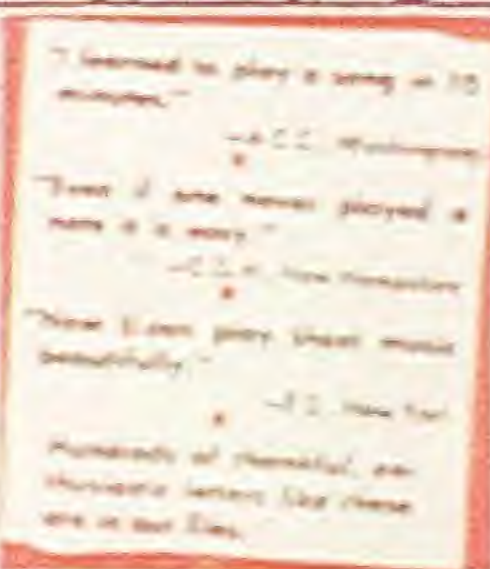 "I learned to play a song in 15
minutes."
"Even if one never played a
note it is easy."
New Hampshire
"Now I can play sheet music
beautifully."
New
Hundreds of thankful, en-
thusiastic letters like these
are in our files.